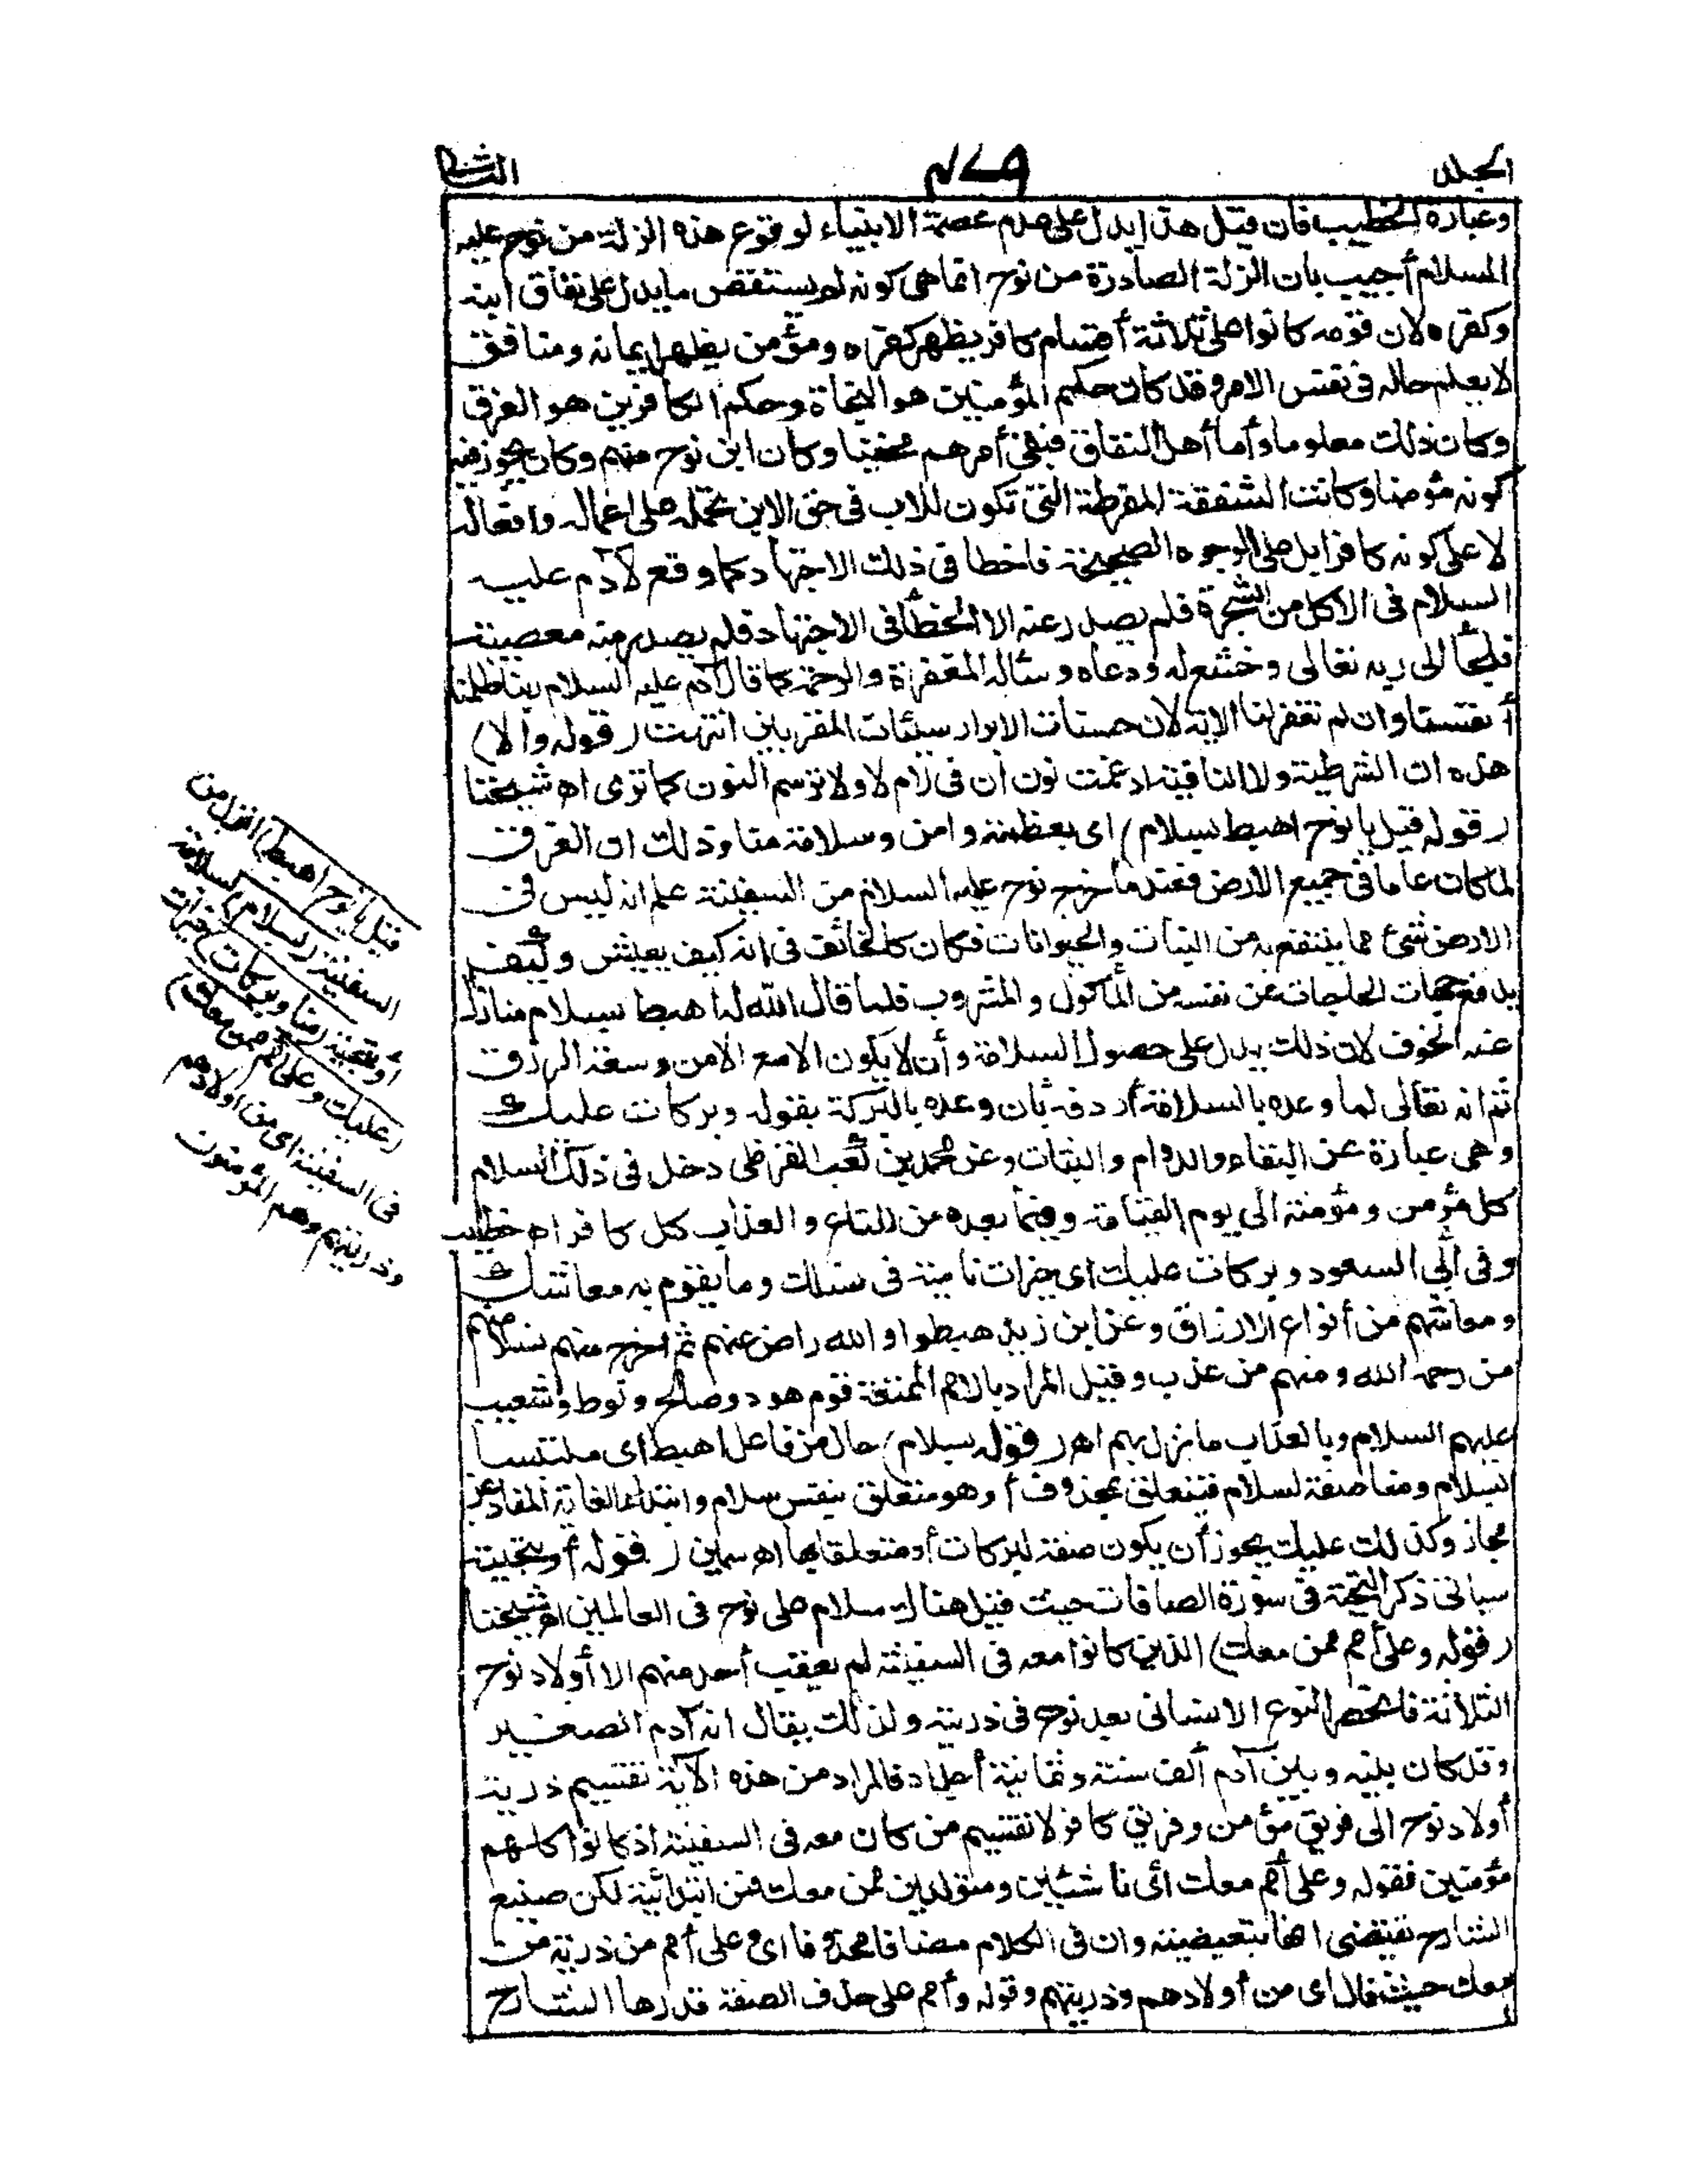 المجلد
٤٧٩
الثانى
وعبارة الخطيب فان قيل هذا يدل على عدم عصمة الانبياء لوقوع هذه الزلة من نوح عليه
السلام أجيب بان الزلة الصادرة من نوح انما هى كونه لم يستقص ما يدل على نفاق ابنه
وكفره لان قومه كانوا على ثلاثة أقسام كافر يظهر كفره ومؤمن يظهر ايمانه ومنافق
لا يعلم حاله فى نفس الامر وقد كان حكم المؤمنين هو النجاة وحكم الكافرين هو الغرق
وكان ذلك معلوما وأما أهل النفاق فبقى أمرهم مخفيا وكان ابن نوح منهم وكان يجوز فيه
كونه مؤمنا وكانت الشفقة المفرطة التى تكون للاب فى حق الابن تحمله على اعماله وافعاله
لا على كونه كافرا بل على الوجوه الصحيحة فاخطا فى ذلك الاجتهاد كما وقع لآدم عليه
السلام فى الاكل من الشجرة فلم يصدر عنه الا الخطأ فى الاجتهاد فلم يصدر منه معصية
فلجأ الى ربه تعالى وخشع له ودعاه وسأله المغفرة والرحمة كما قال آدم عليه السلام ربنا ظلمنا
أنفسنا وان لم تغفر لنا الاية لان حسنات الابرار سيئات المقربين انتهت (قوله والا)
هذه ان الشرطية ولا النافية ادغمت نون ان فى لام لا ولا ترسم النون كما ترى اه شيخنا
(قوله قيل يا نوح اهبط بسلام) اى بعظمة وامن وسلامة منا وذلك ان الغرق
لما كان عاما فى جميع الارض فعند ما خرج نوح عليه السلام من السفينة علم انه ليس فى
الارض شئ مما ينتفع به من النبات والحيوانات فكان كالخائف فى انه كيف يعيش وكيف
يدفع جهات الحاجات عن نفسه من المأكول والمشروب فلما قال الله له اهبط بسلام منا زال
عنه الخوف لان ذلك يدل على حصول السلامة وأن لا يكون الا مع الامن وسعة الرزق
ثم انه تعالى لما وعده بالسلامة أردفه بان وعده بالبركة بقوله وبركات عليك
وهى عبارة عن البقاء والدوام والثبات وعن محمد بن كعب القرظى دخل فى ذلك السلام
كل مؤمن ومؤمنة الى يوم القيامة وفيما بعده من المتاع والعذاب كل كافر اه خطيب
وفى أبى السعود وبركات عليك اى خيرات نامية فى نسلك وما يقوم به معاشك
ومعاشهم من أنواع الارزاق وعن ابن زيد هبطوا والله راض عنهم ثم اخرج منهم نسلا منهم
من رحم الله ومنهم من عذب وقيل المراد بالامم الممتعة قوم هود وصالح ولوط وشعيب
عليهم السلام وبالعذاب ما نزل بهم اه (قوله بسلام) حال من فاعل اهبط اى ملتبسا
بسلام ومنا صفة لسلام فتعلق بمحذوف أو هو متعلق بنفس سلام وابتداء الغاية
مجاز وكذلك عليك يجوز أن يكون صفة لبركات أو متعلقا بها اه سمين (قوله أو بتحية
سياتى ذكر التحية فى سورة الصافات حيث قيل هناك سلام على نوح فى العالمين اه شيخنا
(قوله وعلى أمم ممن معك) الذين كانوا معه فى السفينة لم يعقب أحد منهم الا أولاد نوح
الثلاثة فانحصر النوع الانسانى بعد نوح فى ذريته ولذلك يقال انه آدم الصغير
وقد كان بينه وبين آدم ألف سنة وثمانية أجداد فالمراد من هذه الآية تقسيم ذرية
أولاد نوح الى فريق مؤمن وفريق كافر لا تقسيم من كان معه فى السفينة اذ كانوا كلهم
مؤمنين فقوله وعلى أمم معك أى ناشئين ومتولدين ممن معك فمن ابتدائية لكن صنيع
الشارح يقتضى انها تبعيضية وان فى الكلام مضافا محذوفا اى وعلى أمم من ذرية من
معك حيث قال اى من أولادهم وذريتهم وقوله وأمم على حذف الصفة قدرها الشارح
قيل يا نوح اهبط) انزل من
السفينة (بسلام) بسلامة
أو بتحية (منا وبركات) خيرات
(عليك وعلى أمم ممن معك)
فى السفينة اى من اولادهم
وذريتهم وهم المؤمنون